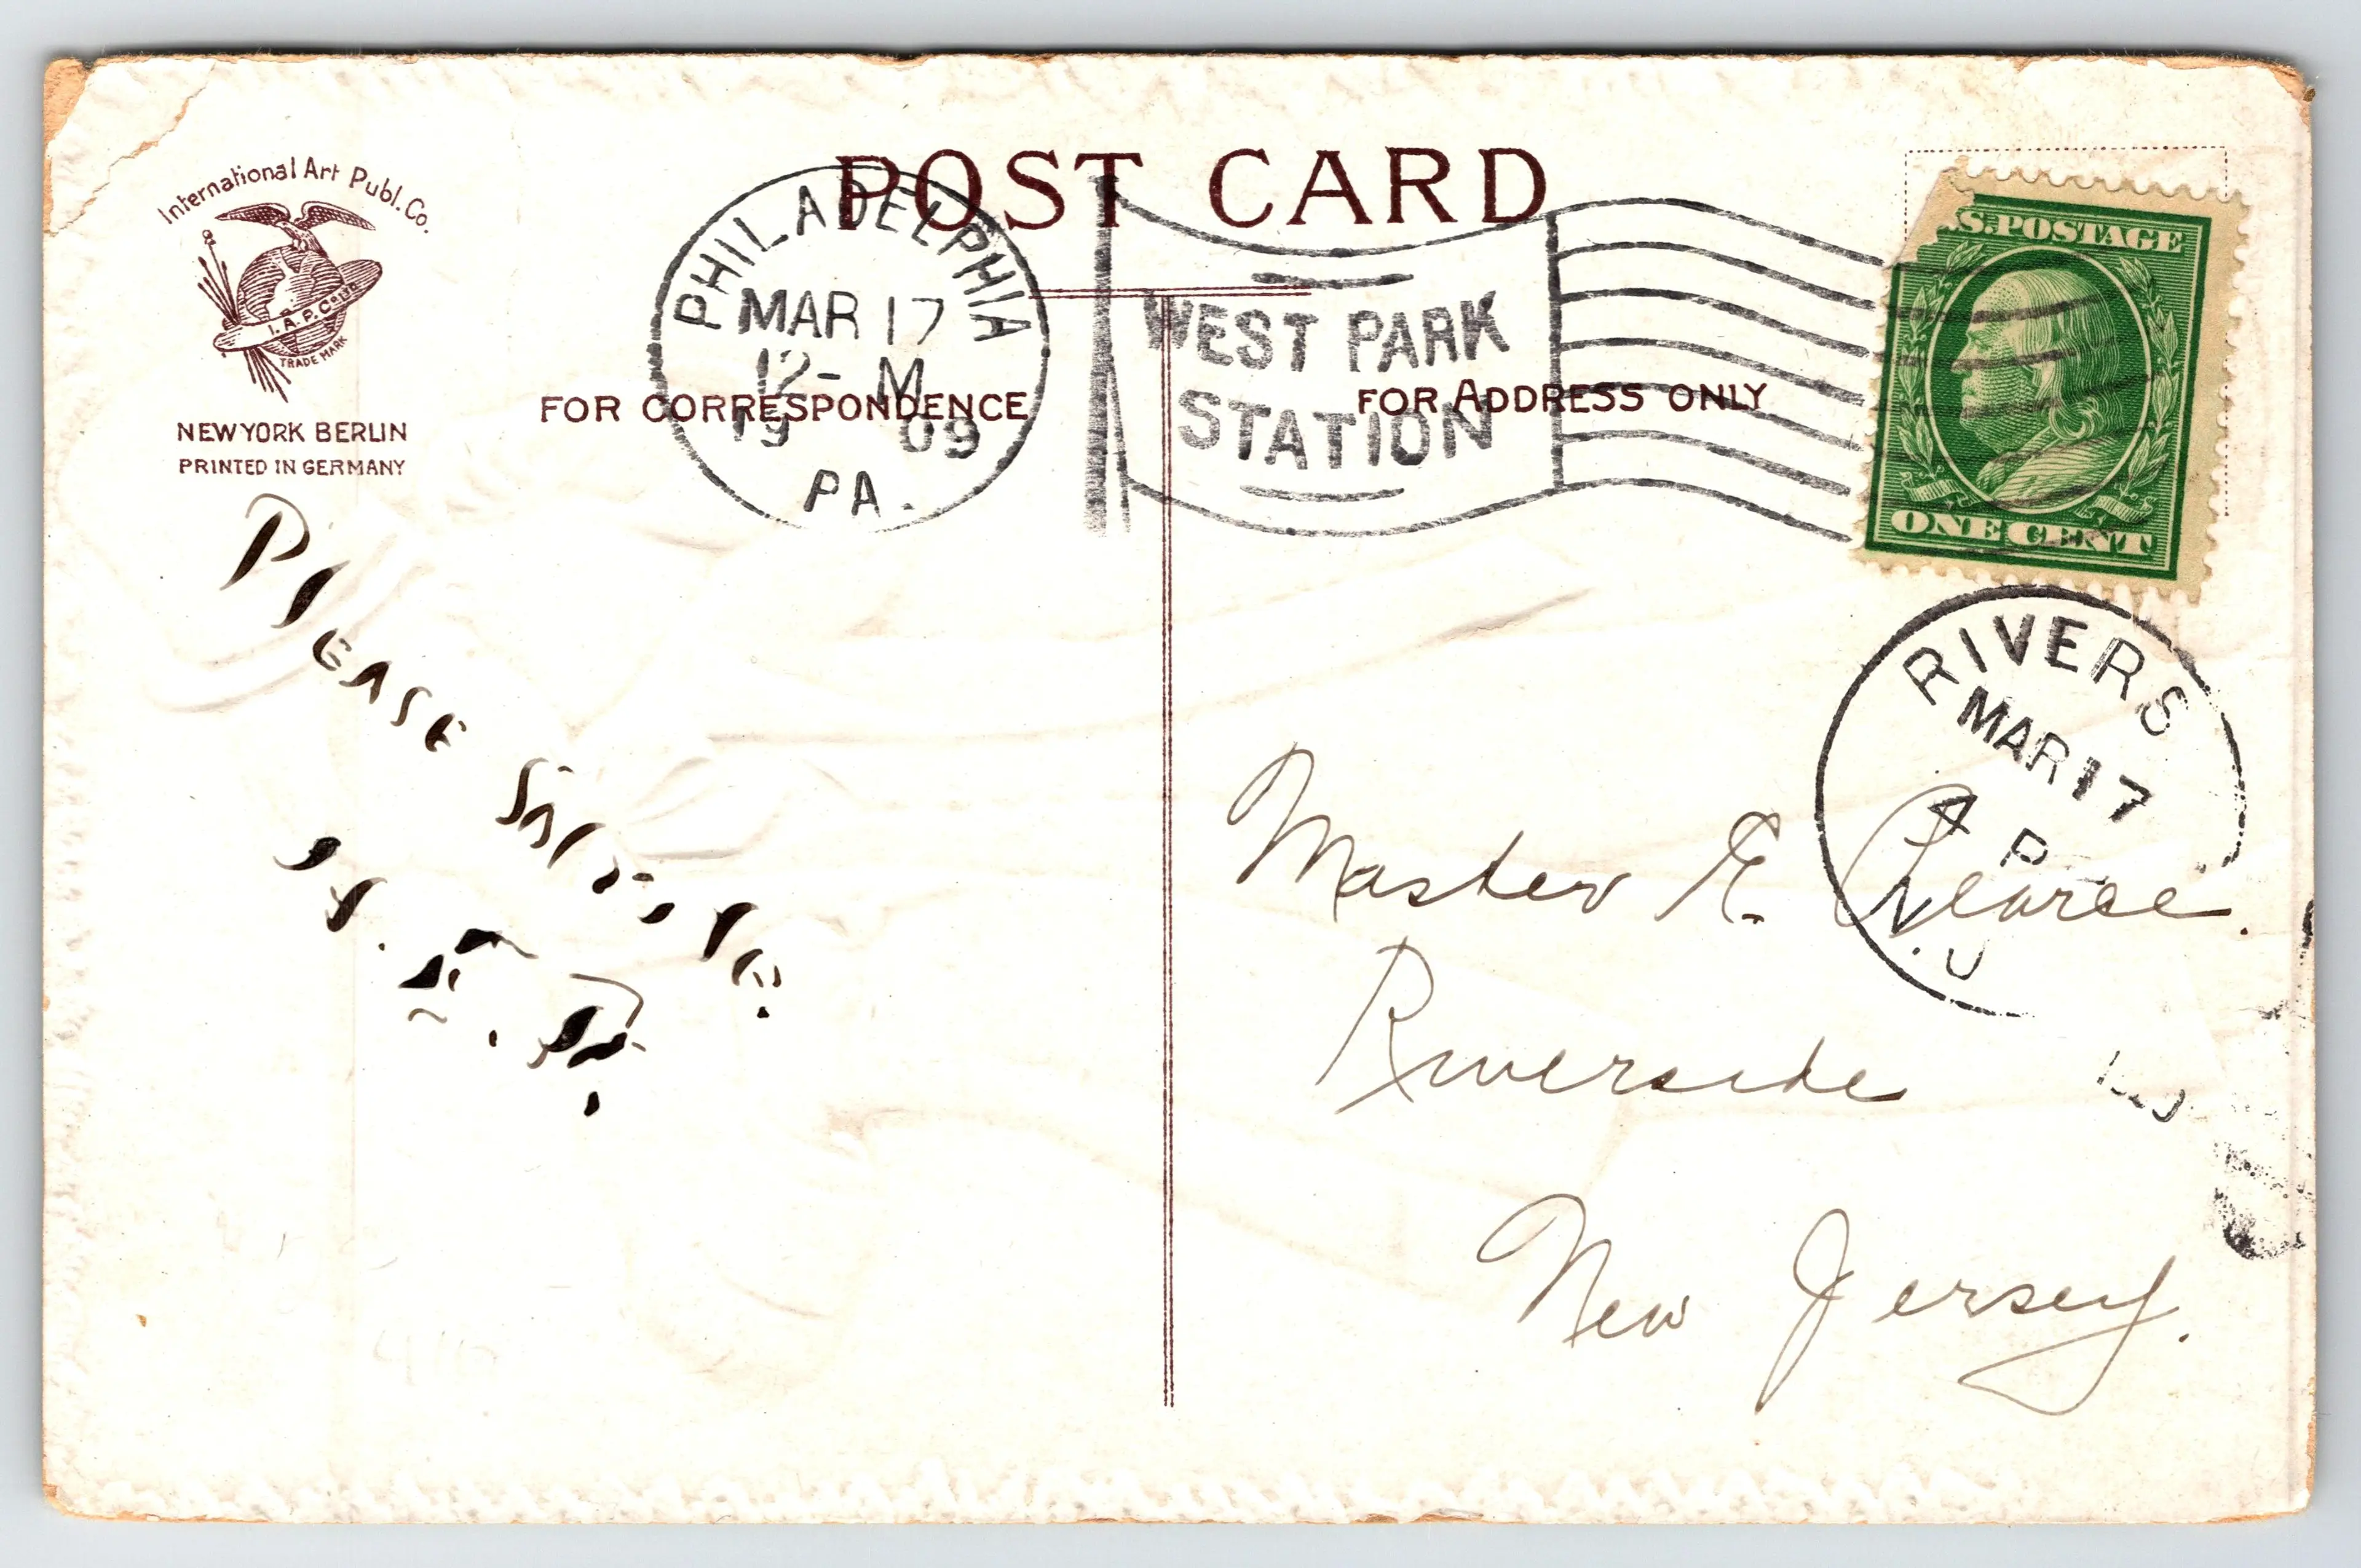 POST CARD
International Art Publ. Co.
I. A. P. Co.
TRADE MARK
NEW YORK BERLIN
PRINTED IN GERMANY
PHILADELPHIA
MAR 17
12- M
19 09
PA.
WEST PARK
STATION
S. POSTAGE
ONE CENT
FOR CORRESPONDENCE
FOR ADDRESS ONLY
RIVERS
MAR 17
4 P
N.J
PlEASE
Master E. Pearce.
Riverside
New Jersey.